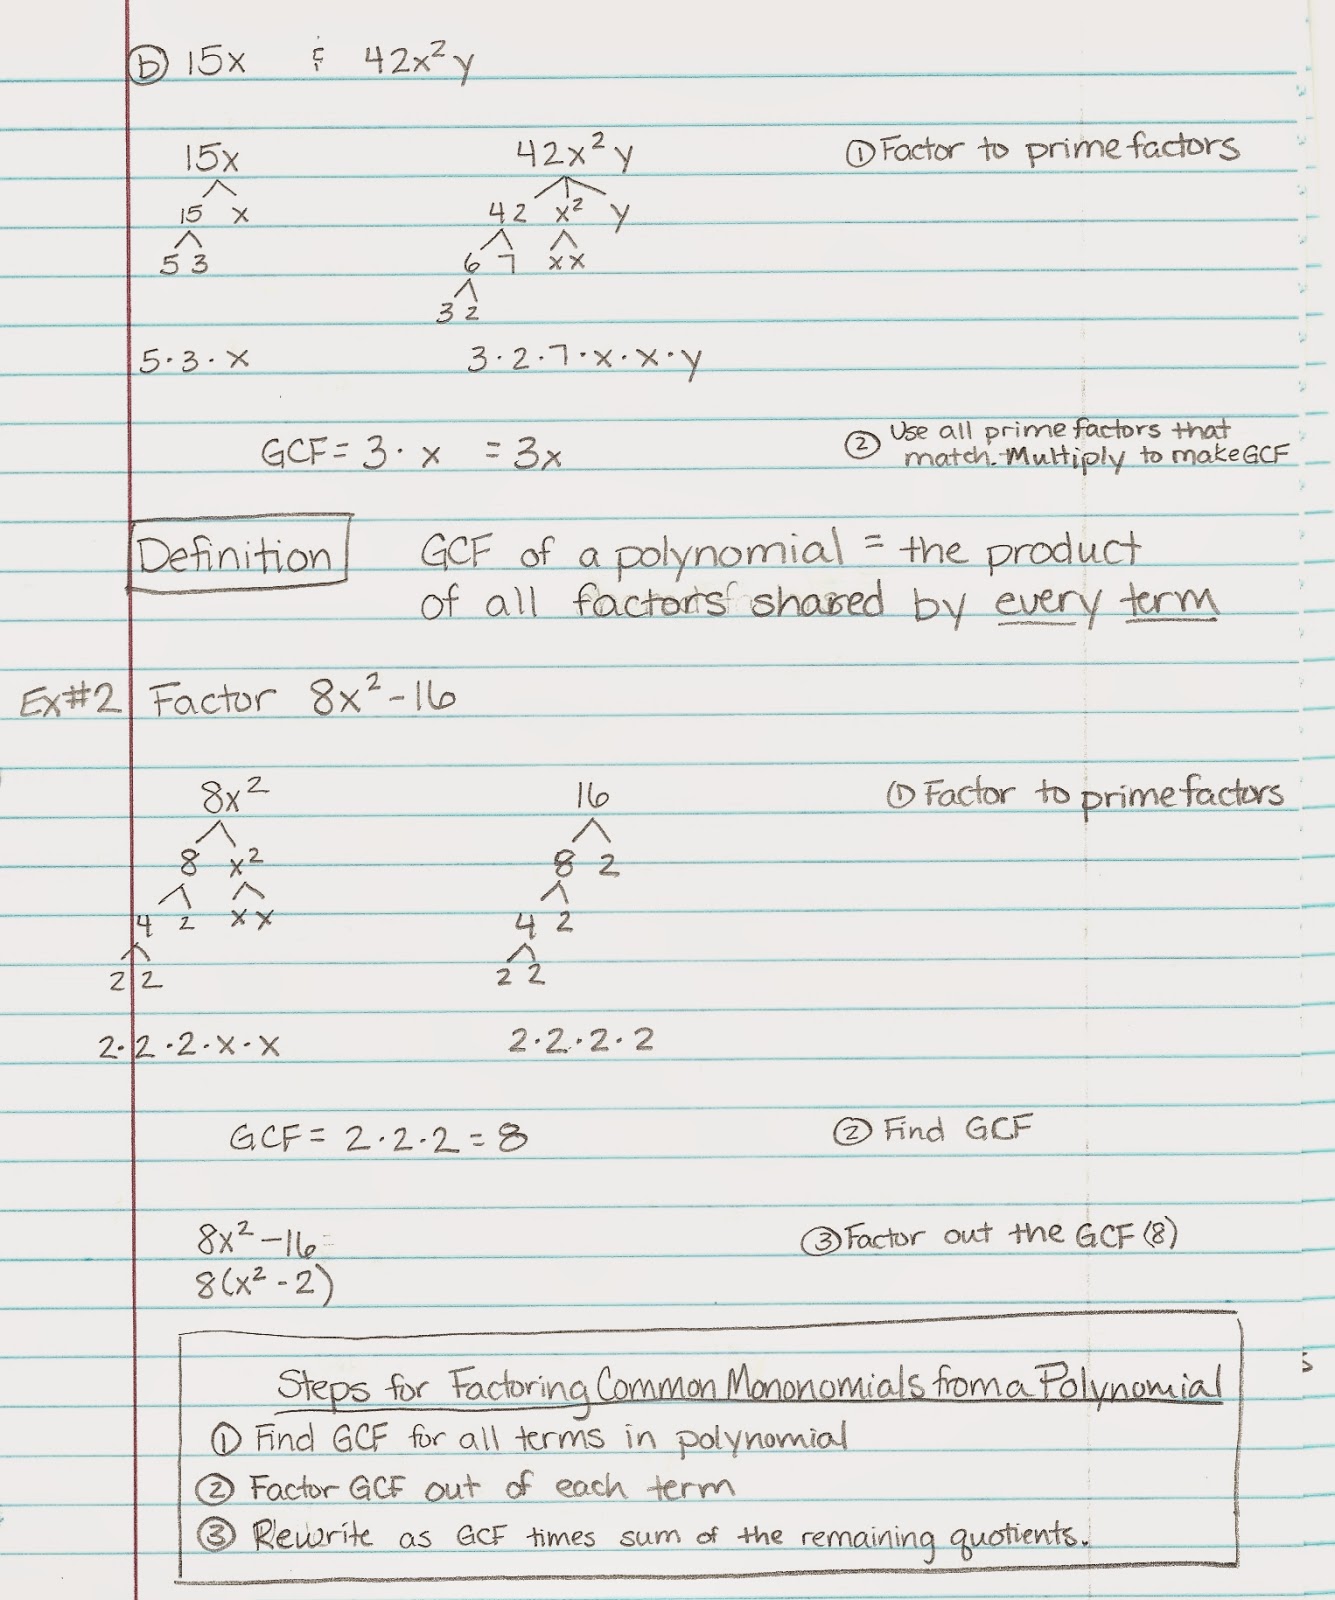 ⓑ 15x & 42x² y
15x 42x² y ① Factor to prime factors
15 x 42 x² y
5 3 6 7 x x
3 2
5 · 3 · x 3 · 2 · 7 · x · x · y
GCF = 3 · x = 3x ② Use all prime factors that
match. Multiply to make GCF
Definition GCF of a polynomial = the product
of all factors shared by every term
Ex#2 Factor 8x² - 16
8x² 16 ① Factor to prime factors
8 x² 8 2
4 2 x x 4 2
2 2 2 2
2 · 2 · 2 · x · x 2 · 2 · 2 · 2
GCF = 2 · 2 · 2 = 8 ② Find GCF
8x² - 16 = ③ Factor out the GCF (8)
8(x² - 2)
s
Steps for Factoring Common Monomials from a Polynomial
① Find GCF for all terms in polynomial
② Factor GCF out of each term
③ Rewrite as GCF times sum of the remaining quotients.